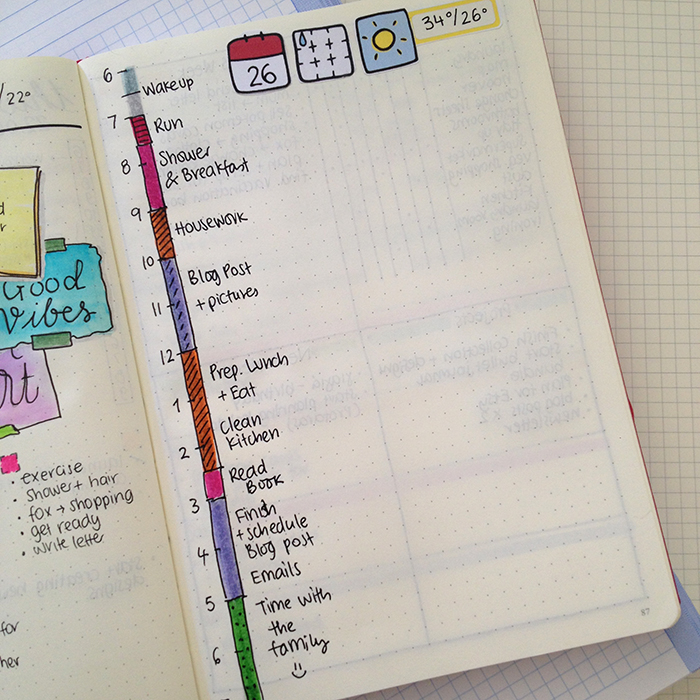 /22°
Good
Vibes
exercise
shower + hair
fox → shopping
get ready
write letter
for
26
34°/26°
6
Wakeup
7
Run
8
Shower
& Breakfast
9
Housework
10
Blog Post
11
+ pictures
12
Prep. Lunch
+ Eat
1
Clean
Kitchen
2
Read
Book
3
Finish
+ schedule
Blog post
4
Emails
5
Time with
the
family
6